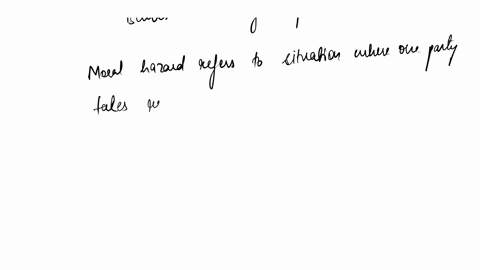 Moral hazard refers to situation where one party
takes